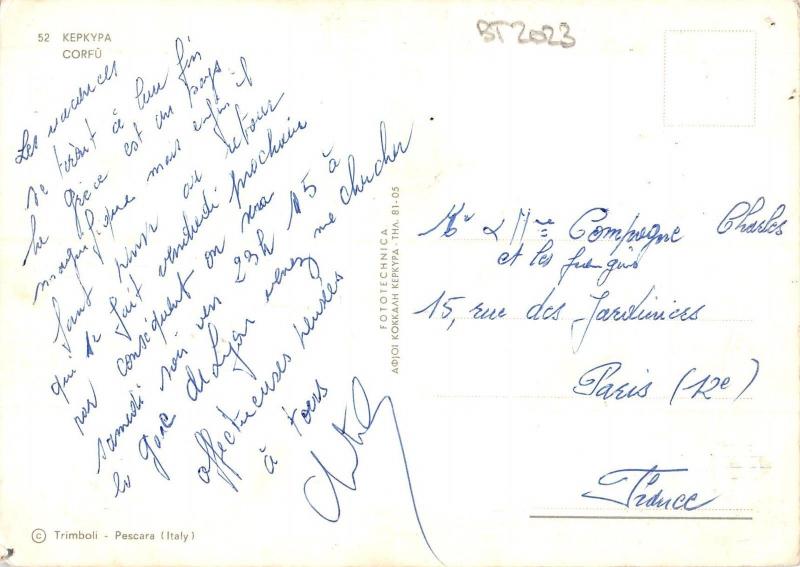 52 ΚΕΡΚΥΡΑ
CORFÙ
BT2023
Les vacances
se tirent à leur fin
la grèce est un pays
magnifique mais enfin il
faut penser au retour
qui se fait vendredi prochain
par conséquent on sera
samedi soir vers 23h 15 à
la gare de Lyon venez me chercher
affectueuses pensées
à tous
FOTOTECHNICA
ΑΦ/ΟΙ ΚΟΚΚΑΛΗ ΚΕΡΚΥΡΑ - ΤΗΛ. 81-05
Mr & Mme Compagne Charles
et les
15, rue des Jardiniers
Paris (12e)
France
© Trimboli - Pescara (Italy)